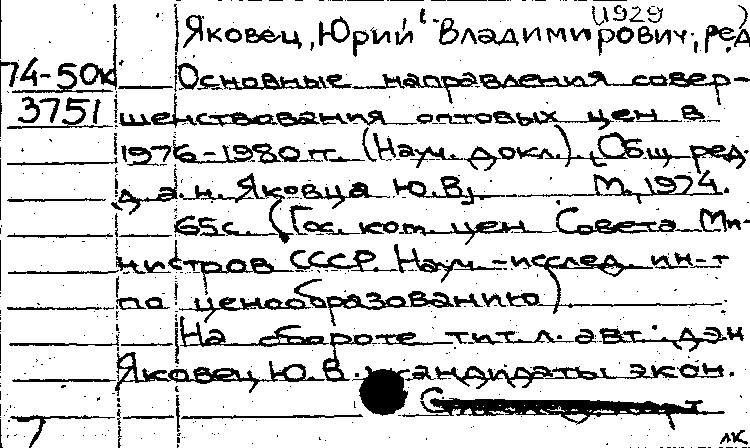 (1929
Яковец, Юрий Владимирович, ред.
74-50к Основные направления совер-
3751 шенствования оптовых цен в
1976-1980 гг. (Науч. докл.). Общ. ред.
д.э.н. Яковца Ю.В. М., 1974.
65с. (Гос. ком. цен Совета Ми-
нистров СССР. Науч.-исслед. ин-т
по ценообразованию).
На обороте тит. л. авт.: дэн
Яковец Ю.В. кандидаты экон.
7